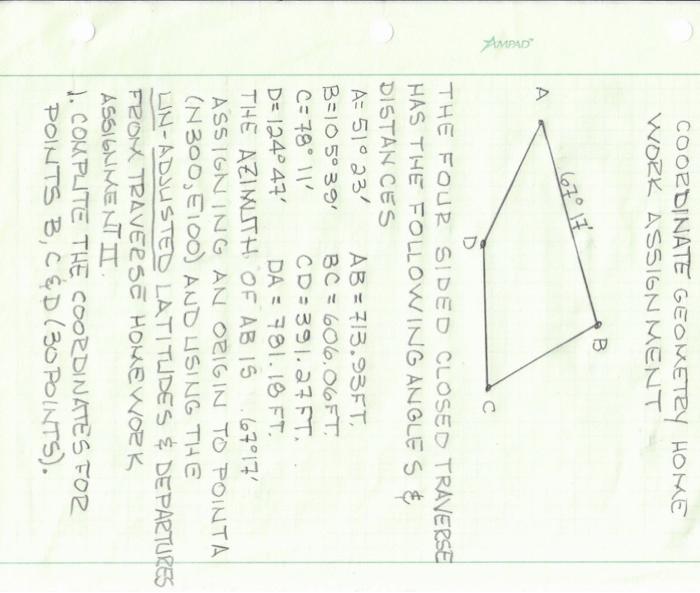 AMPAD
COORDINATE GEOMETRY HOME
WORK ASSIGNMENT
A
67° 17'
B
D
C
THE FOUR SIDED CLOSED TRAVERSE
HAS THE FOLLOWING ANGLES &
DISTANCES
A= 51° 23' AB = 713.93FT.
B=105°39' BC = 606.06FT.
C=78° 11' CD = 391.27FT.
D=124°47' DA = 781.18 FT.
THE AZIMUTH OF AB IS . 67°17'
ASSIGNING AN ORIGIN TO POINT A
(N300, E100) AND USING THE
UN-ADJUSTED LATITUDES & DEPARTURES
FROM TRAVERSE HOMEWORK
ASSIGNMENT II.
1. COMPUTE THE COORDINATES FOR
POINTS B, C & D (30 POINTS).